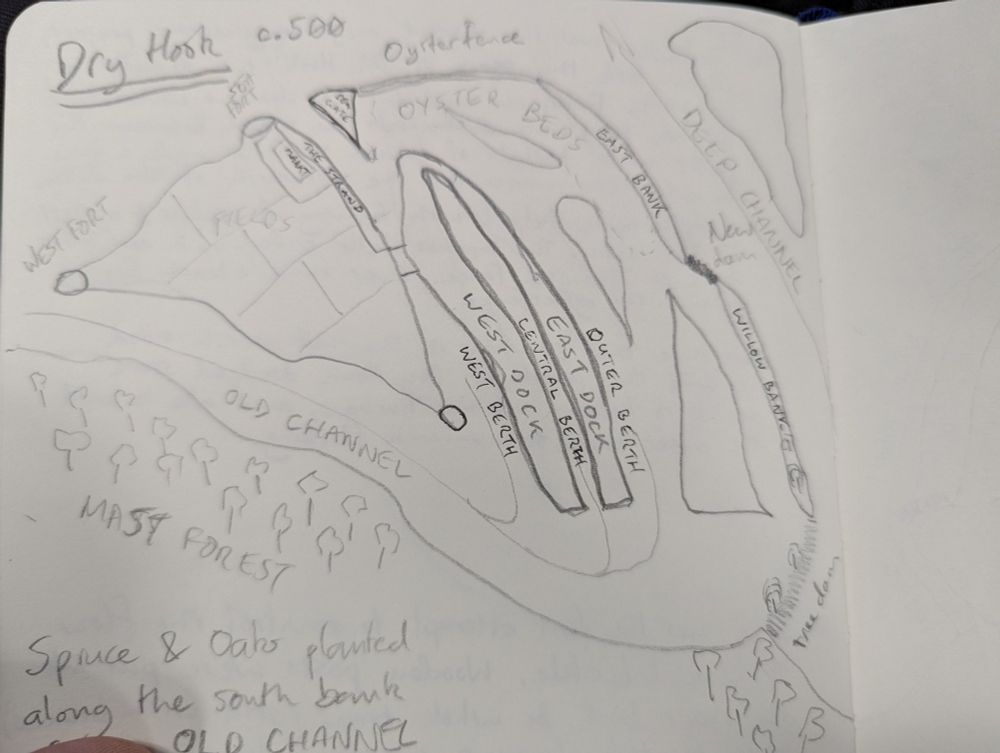 Dry Hook c.500
Oysterfence
SEA FORT
SEA GATE
OYSTER BEDS
EAST BANK
DEEP CHANNEL
MARKET
THE STRAND
WEST FORT
FIELDS
New dam
WILLOW BANK
WEST DOCK
WEST BERTH
CENTRAL BERTH
EAST DOCK
OUTER BERTH
OLD CHANNEL
MAST FOREST
Tree dam
Spruce & Oaks planted
along the south bank
OLD CHANNEL